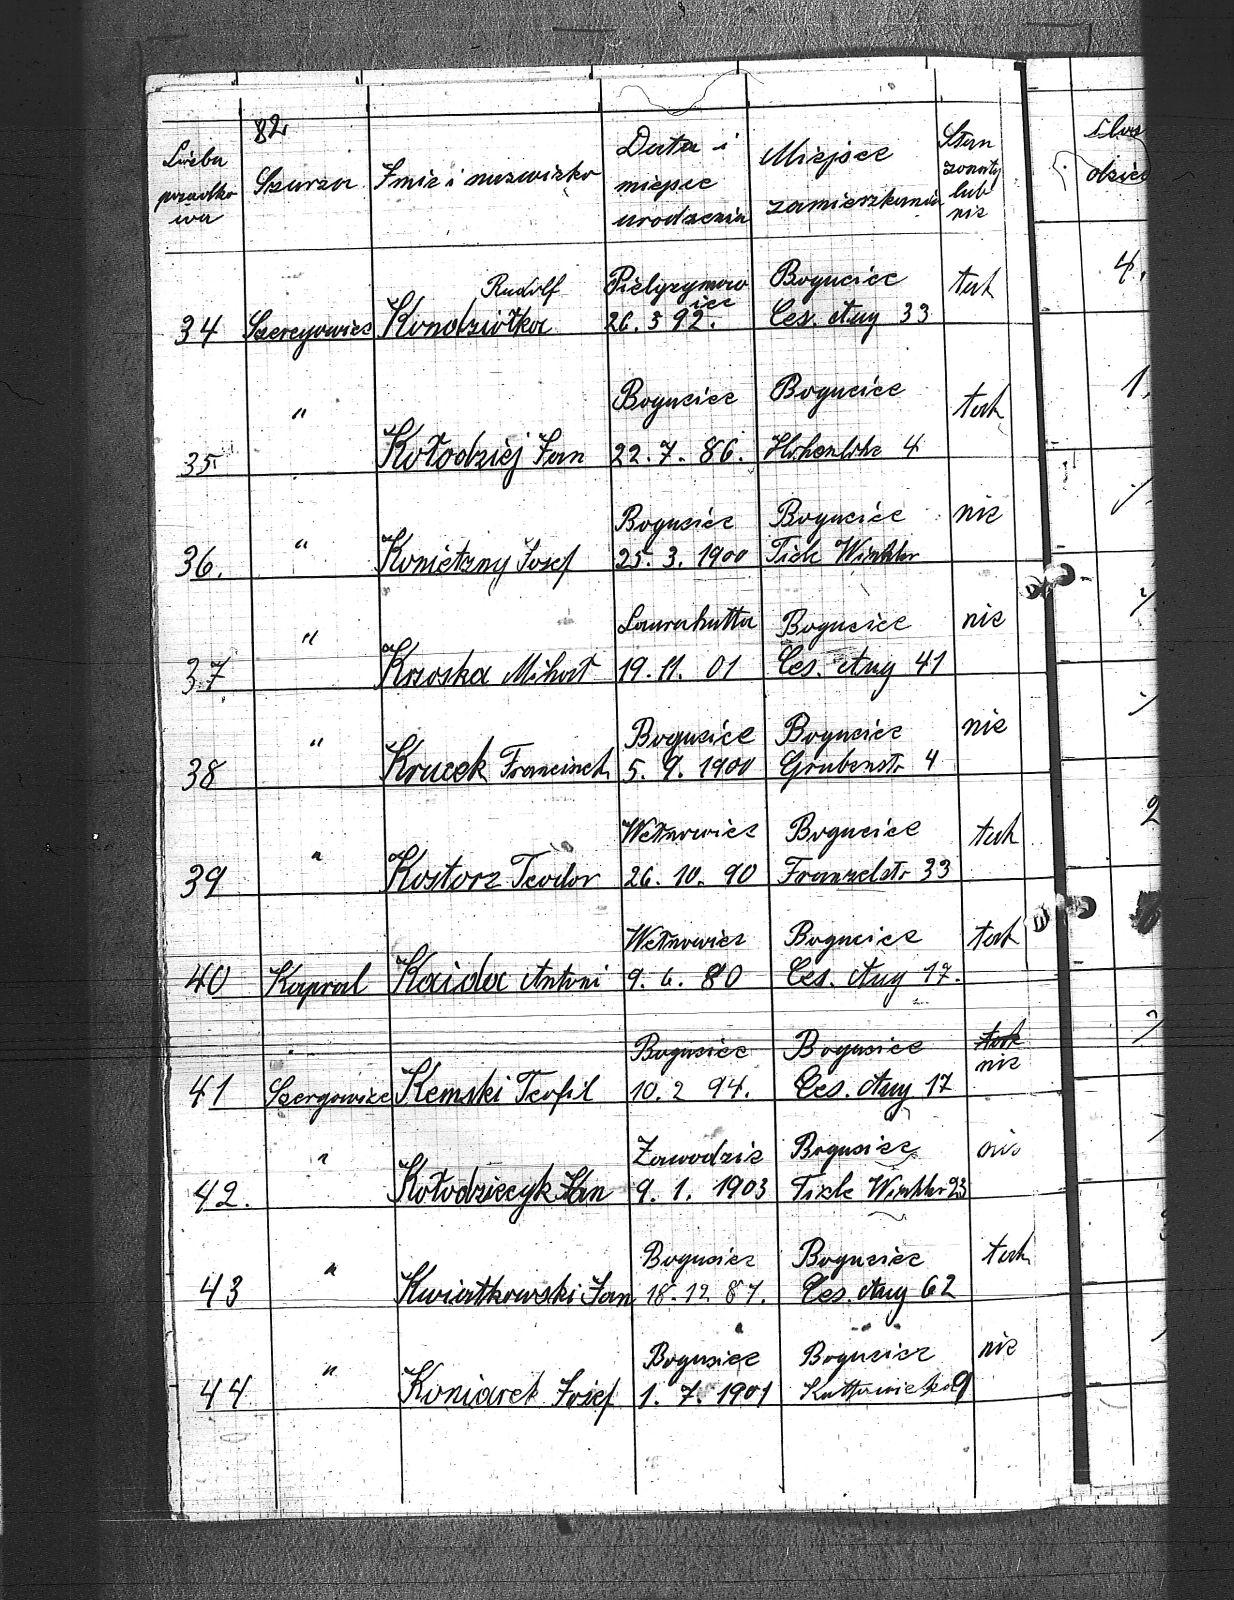 82
Liczba porządkowa Szarża Imię i nazwisko Data i miejsce urodzenia Miejsce zamieszkania Stan żonaty lub nie
Rudolf Pielgrzymowice Bogucice tak 4.
34 Szeregowiec Kondziołka 26. 5 92. Ces. Aug 33
" Bogucice Bogucice tak 1,
35 Kołodziej Jan 22. 7. 86. Hohenlohe 4
" Bogucice Bogucice nie
36. Konietzny Josef 25. 3. 1900 Tiele Winkler
" Laurahutta Bogucice nie
37. Krzoska 19. 11. 01 Ces. Aug 41
" Bogucice Bogucice nie
38 Kruczek 5. 9. 1900 Grubenstr 4
" Wełnowiec Bogucice tak 2
39 Kostorz Teodor 26. 10. 90 33
Wełnowiec Bogucice tak
40 Kapral Kaida Antoni 9. 6. 80 Ces. Aug 17.
Bogucice Bogucice tak nie
41 Szergowiec Kemski Teofil 10. 2 94. Ces. Aug 17
" Zawodzie Bogucice nie
42. Kołodziejczyk Jan 9. 1. 1903 Tiele Winkler 23
" Bogucice Bogucice tak
43 Kwiatkowski Jan 18. 12 87. Ces. Aug 62
" Bogucice Bogucice nie
44 Koniarek Josef 1. 7. 1901 9